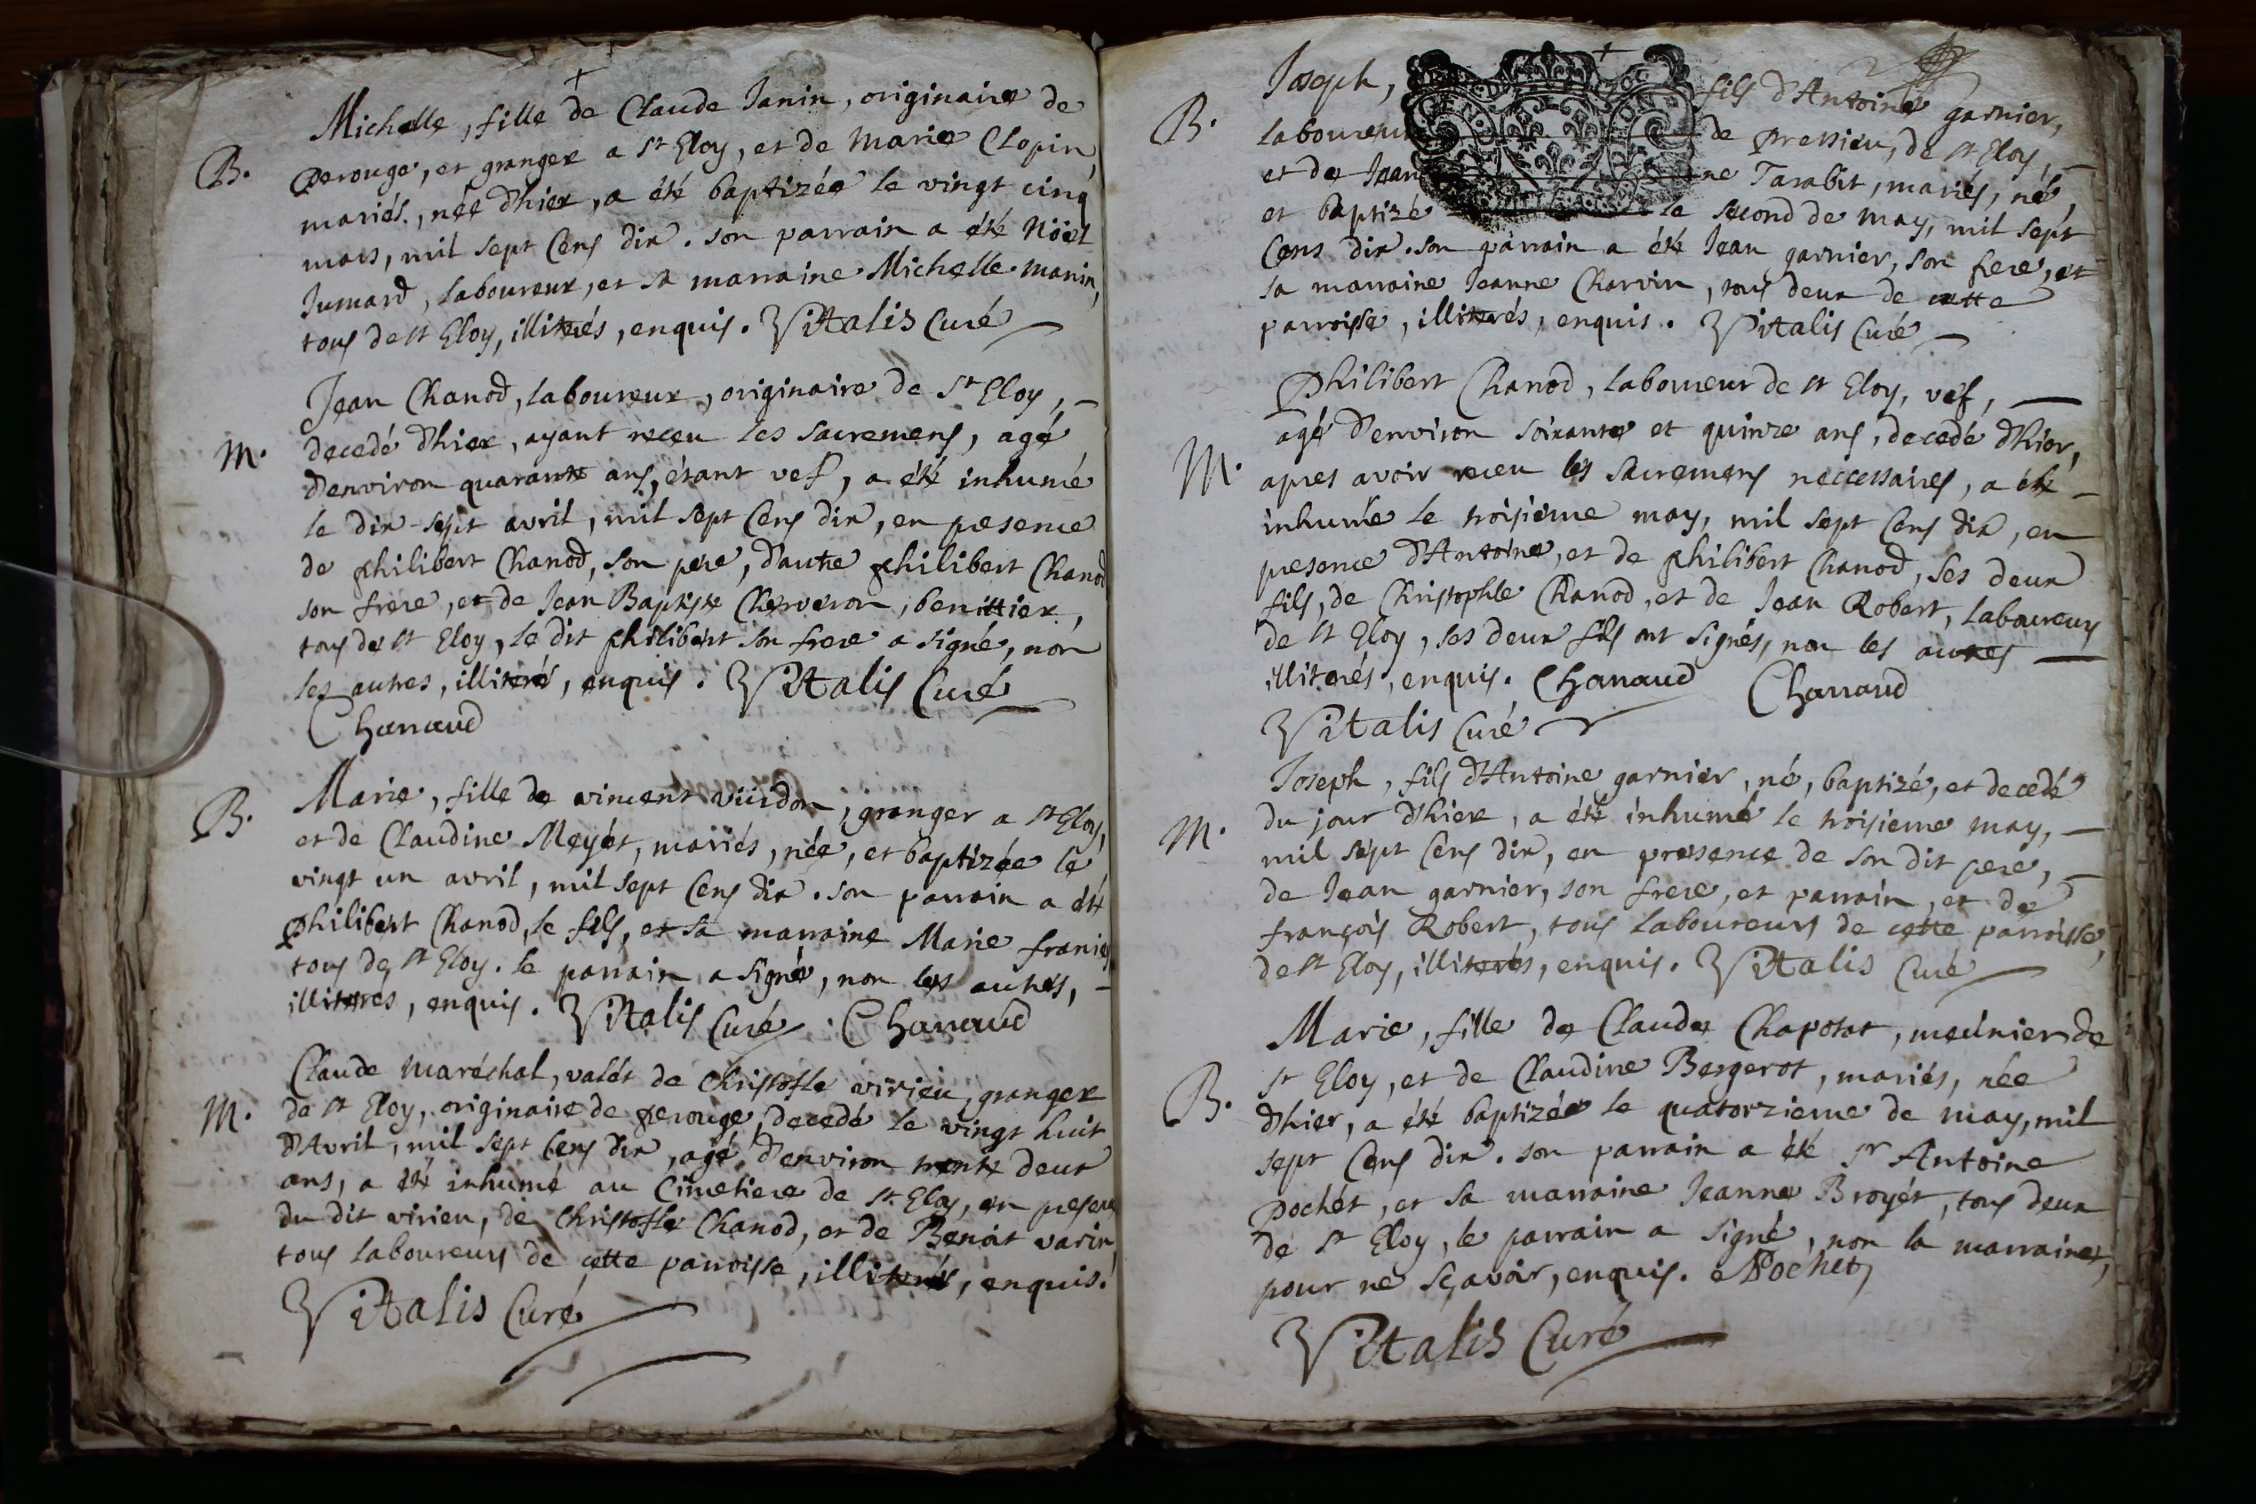 Michelle, fille de Claude Janin, originaire de
B. perouge, et granger a st Eloy, et de marie Clopin,
mariés, née d'hier, a été baptizée le vingt cinq
mars, mil sept Cens dix. son parrain a été Nöel
Jumard, laboureur, et sa marraine Michelle manin,
tous de st Eloy, illiterés, enquis. Vitalis Curé
Jean Chanod, laboureur, originaire de St Eloy,
M. decedé d'hier, ayant receu les sacremens, agé
d'environ quarante ans, étant vef, a été inhumé
le dix-sept avril, mil sept Cens dix, en presence
de philibert Chanod, son pere, d'autre philibert Chanod
son frere, et de Jean Baptiste Cherveron, benittier,
tous de st Eloy, le dit philibert son frere a signé, non
les autres, illiteré, enquis. Vitalis Curé
Chanaud
B. Marie, fille de vincent Viirdon, granger a st Eloy,
et de Claudine Meyét, mariés, née, et baptizée le
vingt un avril, mil sept Cens dix. son parrain a été
philibert Chanod, le fils, et sa marraine Marie
tous de st Eloy. le parrain a signé, non les autres,
illiterés, enquis. Vitalis Curé. Chanaud
Claude maréchal, valét de Christofle virieu, granger
M. de st Eloy, originaire de perouge, decedé le vingt huit
d'Avril, mil sept Cens dix, agé d'environ trente deux
ans, a été inhumé au Cimetiere de st Eloy, en presence
du dit virieu, de Christofle Chanod, et de Benoit varin
tous laboureurs de cette parroisse, illiterés, enquis.
Vitalis Curé
Joseph, fils d'Antoine garnier,
B. laboureur de pressieu, de st Eloy,
et de Jean ne Tarabit, mariés, né,
et baptizé le second de may, mil sept
Cens dix. son parrain a été Jean garnier, son frere, et
sa marraine Jeanne Charvin, tous deux de cette
parroisse, illiterés, enquis. Vitalis Curé
Philibert Chanod, laboureur de st Eloy, vef,
agé d'environ soixante et quinze ans, decedé d'hier,
M. apres avoir receu les sacremens neccessaires, a été
inhumé le troisieme may, mil sept Cens dix, en
presence d'Antoine, et de philibert Chanod, ses deux
fils, de Christophle Chanod, et de Jean Robert, laboureurs
de st Eloy, ses deux fils ont signés, non les autres
illiterés, enquis. Chanaud Chanaud
Vitalis Curé
Joseph, fils d'Antoine garnier, né, baptizé, et decedé
M. du jour d'hier, a été inhumé le troisieme may,
mil sept Cens dix, en presence de son dit pere,
de Jean garnier, son frere, et parrain, et de
françois Robert, tous laboureurs de cette parroisse,
de st Eloy, illiterés, enquis. Vitalis Curé
Marie, fille de Claude Chapotat, meünier de
B. st Eloy, et de Claudine Bergerot, mariés, née
d'hier, a été baptizée le quatorzieme de may, mil
sept Cens dix. son parrain a été sr Antoine
pochét, et sa marraine Jeanne Broyét, tous deux
de st Eloy, le parrain a signé, non la marraine,
pour ne sçavoir, enquis. Pochet
Vitalis Curé